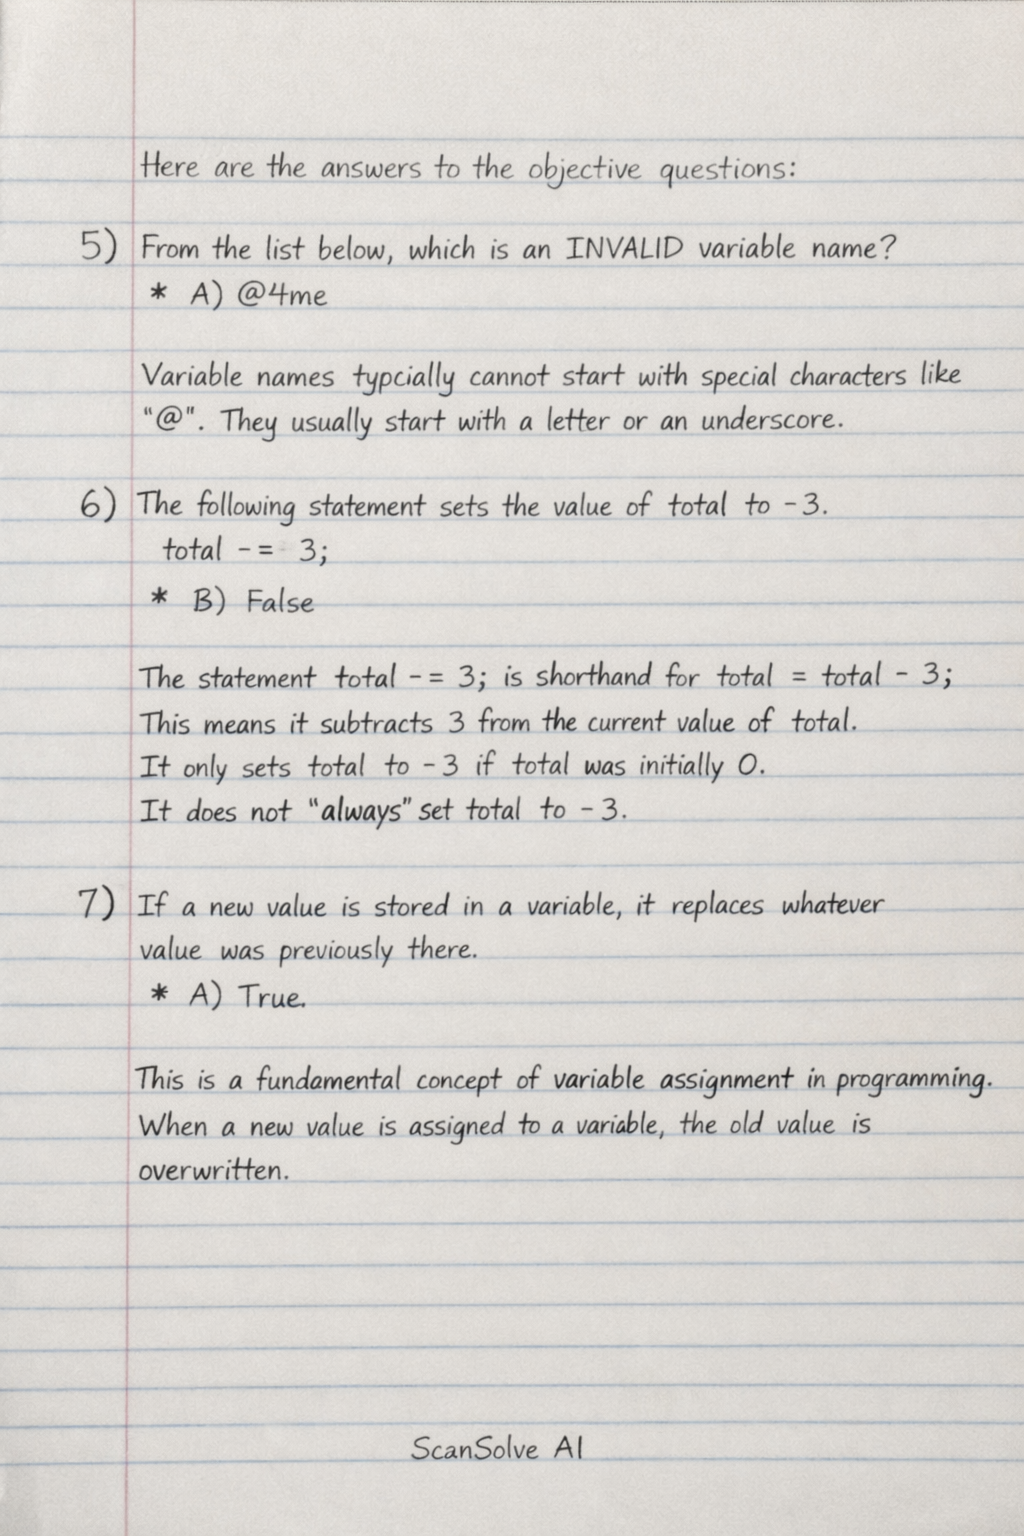 Here are the answers to the objective questions:
5) From the list below, which is an INVALID variable name?
* A) @4me
Variable names typcially cannot start with special characters like
"@". They usually start with a letter or an underscore.
6) The following statement sets the value of total to -3.
total -= 3;
* B) False
The statement total -= 3; is shorthand for total = total - 3;
This means it subtracts 3 from the current value of total.
It only sets total to -3 if total was initially 0.
It does not "always" set total to -3.
7) If a new value is stored in a variable, it replaces whatever
value was previously there.
* A) True.
This is a fundamental concept of variable assignment in programming.
When a new value is assigned to a variable, the old value is
overwritten.
ScanSolve AI